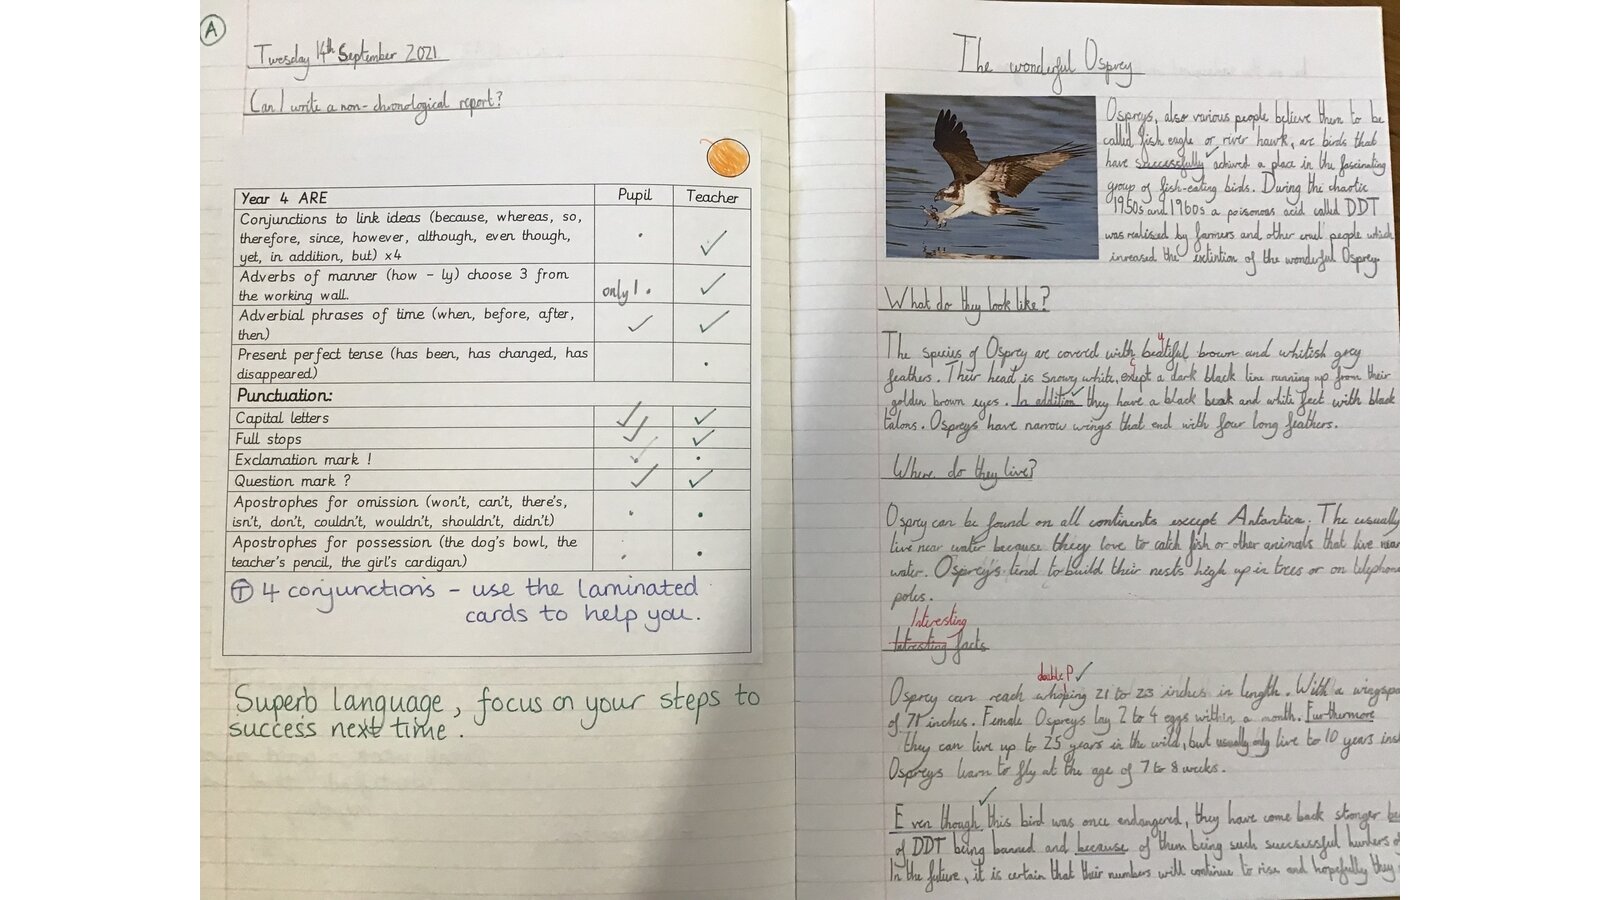 A
Tuesday 14th September 2021
Can I write a non-chronological report?
Year 4 ARE Pupil Teacher
Conjunctions to link ideas (because, whereas, so,
therefore, since, however, although, even though,
yet, in addition, but) x4
Adverbs of manner (how – ly) choose 3 from
the working wall. only 1.
Adverbial phrases of time (when, before, after,
then)
Present perfect tense (has been, has changed, has
disappeared)
Punctuation:
Capital letters
Full stops
Exclamation mark !
Question mark ?
Apostrophes for omission (won't, can't, there's,
isn't, don't, couldn't, wouldn't, shouldn't, didn't)
Apostrophes for possession (the dog's bowl, the
teacher's pencil, the girl's cardigan)
T 4 conjunctions - use the laminated
cards to help you.
Superb language, focus on your steps to
success next time.
The wonderful Osprey
Ospreys, also various people believe them to be
called fish eagle or river hawk, are birds that
have successfully achived a place in the fascinating
group of fish-eating birds. During the chaotic
1950s and 1960s a poisonous acid called DDT
was realised by farmers and other cruel people which
increased the extintion of the wonderful Osprey.
What do they look like?
u
The species of Osprey are covered with beatiful brown and whitish grey
c
feathers. Their head is snowy white, exept a dark black line running up from their
golden brown eyes. In addition they have a black beak and white feet with black
talons. Ospreys have narrow wings that end with four long feathers.
Where do they live?
Osprey can be found on all continents except Antarctica. The usually
live near water because they love to catch fish or other animals that live near
water. Osprey's tend to build their nests high up in trees or on telephone
poles.
Interesting
Intresting facts
double P
Osprey can reach whoping 21 to 23 inches in length. With a wingspa
of 71 inches. Female Ospreys lay 2 to 4 eggs within a month. Furthermore
they can live up to 25 years in the wild, but usually only live to 10 years ins
Ospreys learn to fly at the age of 7 to 8 weeks.
Even though this bird was once endangered, they have come back stronger be
of DDT being banned and because of them being such succsessful hunters
In the future, it is certain that their numbers will continue to rise and hopefully they